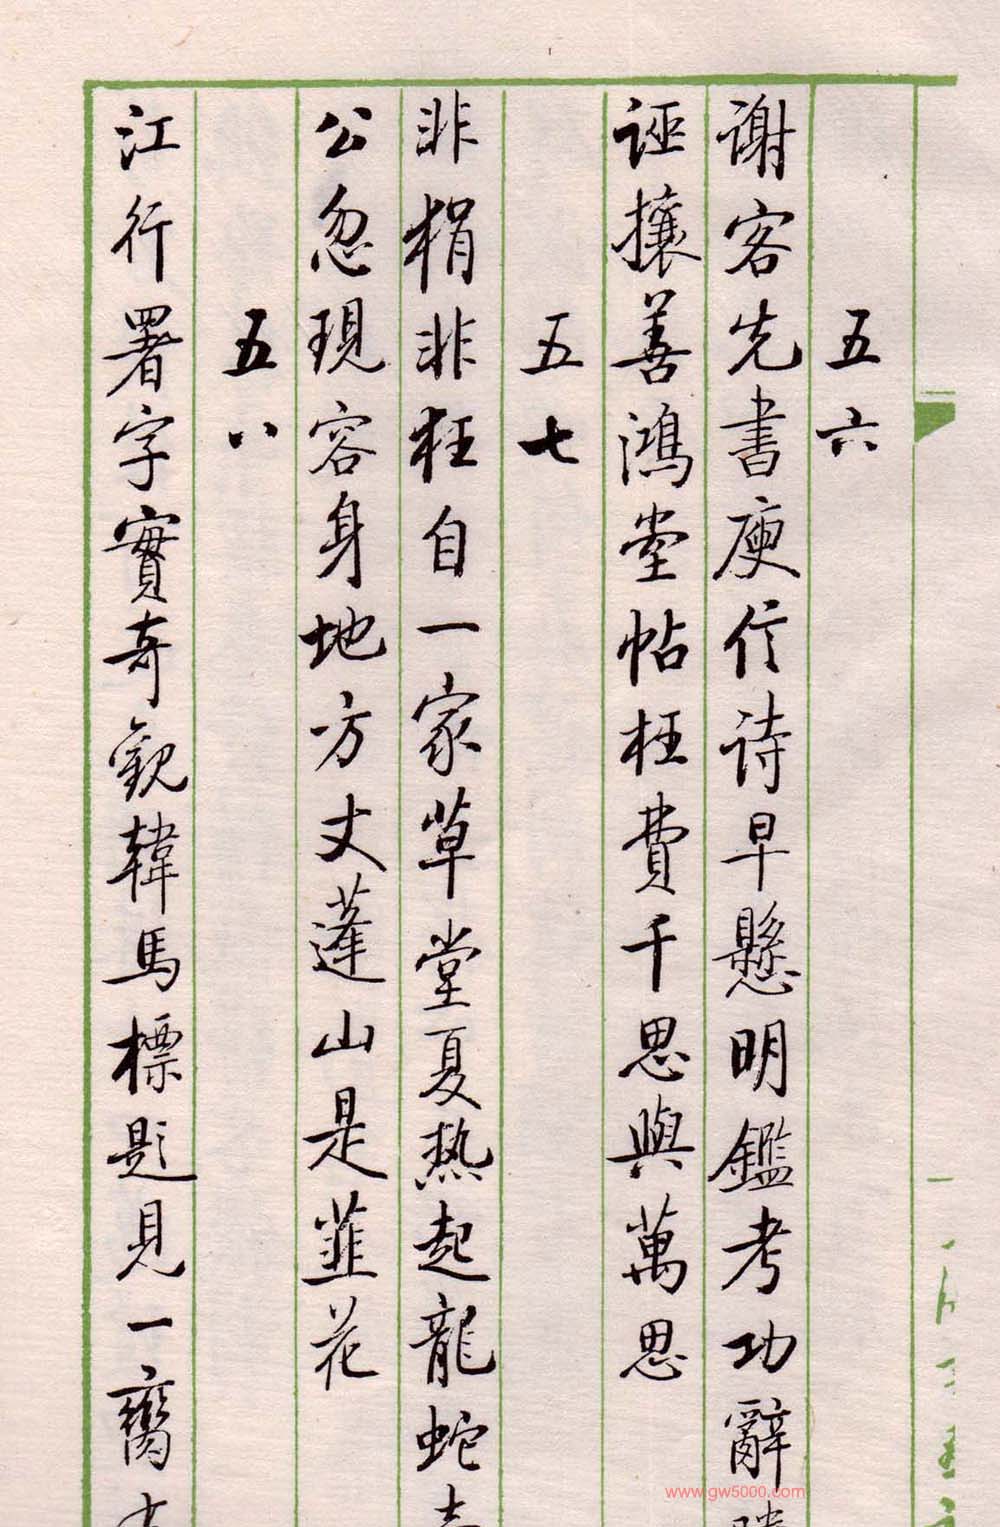 五六
谢客先書庾信诗早懸明鑑考功辭
誣攘善鴻堂帖枉費千思與萬思
五七
非楊非枉自一家草堂夏热起龍蛇
公忽現容身地方丈蓬山是韮花
五八
江行署字實奇觀韓馬標題見一臠
www.gw5000.com